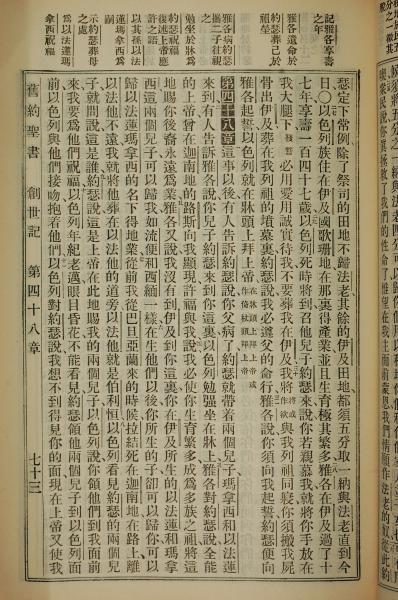 記雅各享壽
之年
雅各遺命於
約瑟葬己於
祖塋
雅各病約瑟
攜二子往視
勉坐於牀為
約瑟祝福
復述上帝應
許之語
示約瑟葬母
之處
為以法蓮瑪
拿西祝福
瑟定下常例除了祭司的田地不歸法老其餘的伊及田地都須五分取一納與法老直到今
日〇以色列族住在伊及國歌珊地在那裏得產業並且生育極其繁多雅各在伊及過了十
七年享壽一百四十七歲以色列死時將到召他兒子約瑟來說你若親慕我就將你手放在
我大腿下必用愛用誠實待我不要葬我在伊及我將與我列祖同寢你須搬我屍
骨出伊及葬在我列祖的墳墓裏約瑟說我必遵父的命行雅各說你須向我起誓約瑟便向
雅各起誓以色列就在牀頭上拜上帝
第四十八章這事以後有人告訴約瑟說你父病了約瑟就帶着兩個兒子瑪拿西和以法蓮
來到有人告訴雅各說你兒子約瑟來到你這裏以色列勉強坐在牀上雅各對約瑟說全能
的上帝曾在迦南地的路斯向我顯現許福與我說我必使你生育繁多成為多族之祖將這
地賜你後裔永遠為業雅各又說我沒有到伊及到你這裏你在伊及所生的以法蓮和瑪拿
西這兩個兒子可以歸我如流便和西緬一樣在生他們以後你所生的子卻可以歸你可以
歸以法蓮瑪拿西的名下得地業從前我從巴旦亞蘭來的時候拉結死在迦南地在路上離
以法他不遠我就將他葬在以法他的道旁以法他就是伯利恒以色列看見約瑟的兩個兒
子就問說這是誰約瑟說這是上帝在此地賜我的兩個兒子以色列說你領他們到我面前
來我要為他們祝福以色列年紀老邁眼目昏花不能看見約瑟領他兩個兒子到以色列面
前以色列與他們接吻抱着他們以色列對約瑟說我想不到得見你的面現在上帝又使我
舊約聖書　創世記　第四十八章　七十三